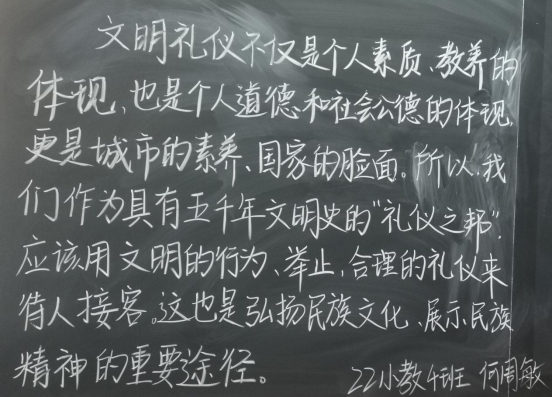 文明礼仪不仅是个人素质、教养的
体现,也是个人道德和社会公德的体现,
更是城市的素养、国家的脸面。所以,我
们作为具有五千年文明史的“礼仪之邦”,
应该用文明的行为、举止,合理的礼仪来
待人接客。这也是弘扬民族文化、展示民族
精神的重要途径。
22小教4班 何周敏